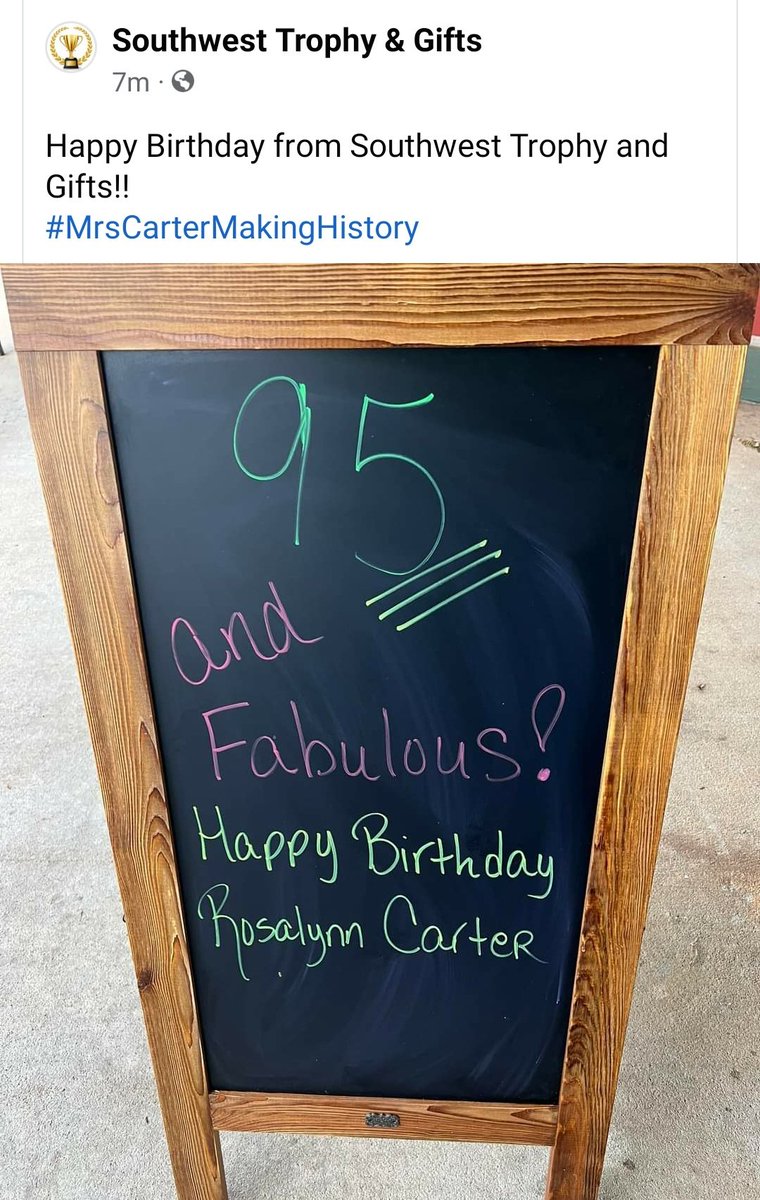 Southwest Trophy & Gifts
7m ·
Happy Birthday from Southwest Trophy and
Gifts!!
#MrsCarterMakingHistory
95
and
Fabulous!
Happy Birthday
Rosalynn Carter